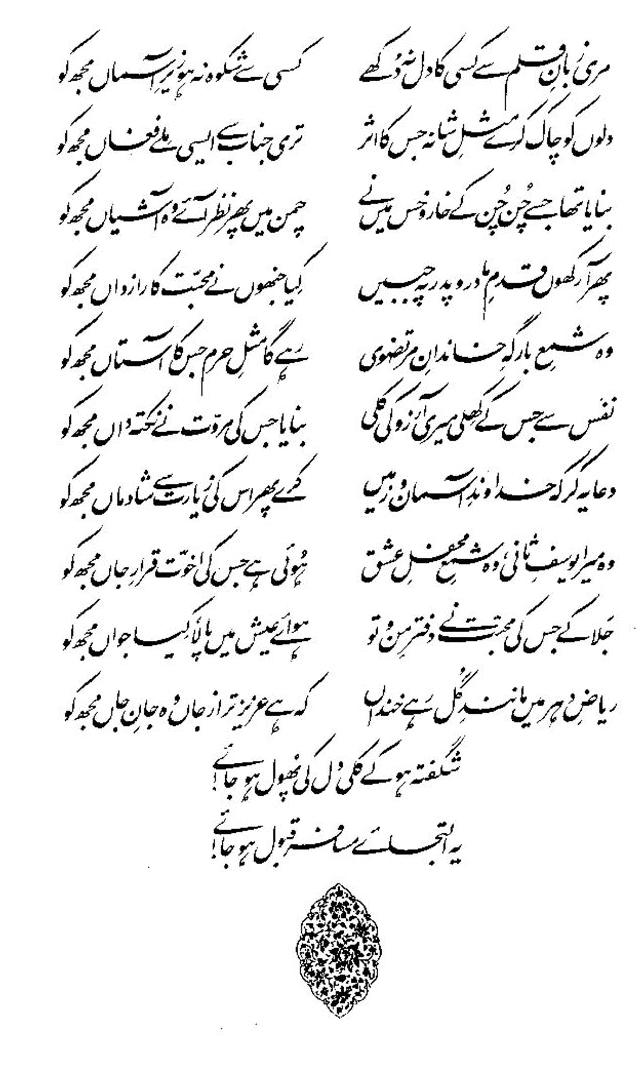 مری زبانِ قلم سے کسی کا دل نہ دُکھے کسی سے شکوہ نہ ہو زیرِ آسماں مجھ کو
دلوں کو چاک کرے مثلِ شانہ جس کا اثر تری جناب سے ایسی ملے فغاں مجھ کو
بنایا تھا جسے چُن چُن کے خار و خس میں نے چمن میں پھر نظر آئے وہ آشیاں مجھ کو
پھر آ رکھوں قدمِ مادر و پدر پہ جبیں کِیا جنھوں نے محبّت کا رازداں مجھ کو
وہ شمعِ بارگہِ خاندانِ مرتضوی رہے گا مثلِ حرم جس کا آستاں مجھ کو
نفَس سے جس کے کھِلی میری آرزو کی کلی بنایا جس کی مروّت نے نکتہ داں مجھ کو
دعا یہ کر کہ خداوندِ آسمان و زمیں کرے پھر اس کی زیارت سے شادماں مجھ کو
وہ میرا یوسفِ ثانی، وہ شمعِ محفلِ عشق ہُوئی ہے جس کی اخوّت قرارِ جاں مجھ کو
جَلا کے جس کی محبّت نے دفترِ من و تو ہوائے عیش میں پالا، کِیا جواں مجھ کو
ریاضِ دہر میں مانندِ گُل رہے خنداں کہ ہے عزیز تر از جاں وہ جانِ جاں مجھ کو
شگفتہ ہو کے کلی دل کی پھُول ہو جائے!
یہ التجائے مسافر قبول ہو جائے!